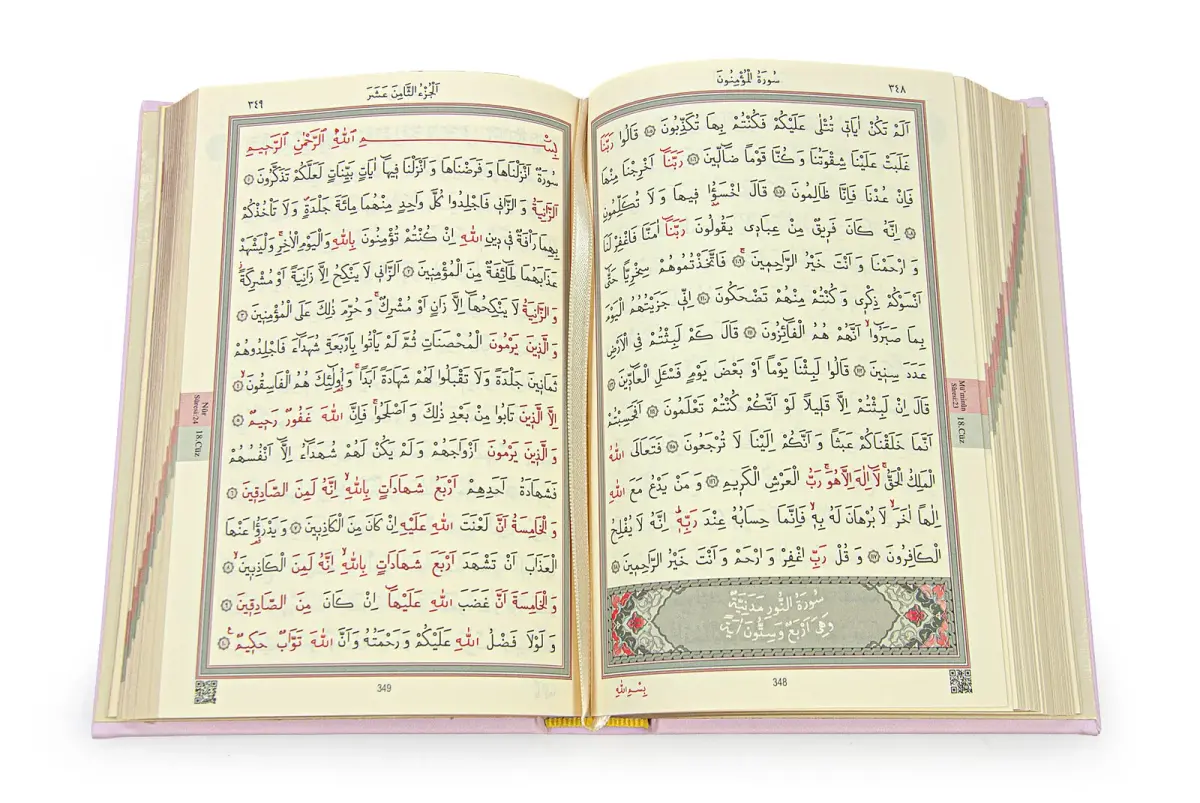 سُورَةُ الْمُؤْمِنُونَ
٣٤٨
اَلَمْ تَكُنْ اٰيَاتٖى تُتْلٰى عَلَيْكُمْ فَكُنْتُمْ بِهَا تُكَذِّبُونَ ﴿١٠٥﴾ قَالُوا رَبَّنَا
غَلَبَتْ عَلَيْنَا شِقْوَتُنَا وَ كُنَّا قَوْمًا ضَٓالّٖينَ ﴿١٠٦﴾ رَبَّنَٓا اَخْرِجْنَا مِنْهَا
فَاِنْ عُدْنَا فَاِنَّا ظَالِمُونَ ﴿١٠٧﴾ قَالَ اخْسَؤُ۫ا فٖيهَا وَ لَا تُكَلِّمُونِ
﴿١٠٨﴾ اِنَّهُ كَانَ فَرٖيقٌ مِنْ عِبَادٖى يَقُولُونَ رَبَّنَٓا اٰمَنَّا فَاغْفِرْ لَنَا
وَ ارْحَمْنَا وَ اَنْتَ خَيْرُ الرَّاحِمٖينَ ﴿١٠٩﴾ فَاتَّخَذْتُمُوهُمْ سِخْرِيًّا حَتّٰٓى
اَنْسَوْكُمْ ذِكْرٖى وَ كُنْتُمْ مِنْهُمْ تَضْحَكُونَ ﴿١١٠﴾ اِنّٖى جَزَيْتُهُمُ الْيَوْمَ
بِمَا صَبَرُٓوا اَنَّهُمْ هُمُ الْفَٓائِزُونَ ﴿١١١﴾ قَالَ كَمْ لَبِثْتُمْ فِى الْاَرْضِ
عَدَدَ سِنٖينَ ﴿١١٢﴾ قَالُوا لَبِثْنَا يَوْمًا اَوْ بَعْضَ يَوْمٍ فَسْـَٔلِ الْعَٓادّٖينَ ﴿١١٣﴾
قَالَ اِنْ لَبِثْتُمْ اِلَّا قَلٖيلًا لَوْ اَنَّكُمْ كُنْتُمْ تَعْلَمُونَ ﴿١١٤﴾ اَفَحَسِبْتُمْ
اَنَّمَا خَلَقْنَاكُمْ عَبَثًا وَ اَنَّكُمْ اِلَيْنَا لَا تُرْجَعُونَ ﴿١١٥﴾ فَتَعَالَى اللّٰهُ
الْمَلِكُ الْحَقُّ لَٓا اِلٰهَ اِلَّا هُوَ رَبُّ الْعَرْشِ الْكَرٖيمِ ﴿١١٦﴾ وَ مَنْ يَدْعُ مَعَ اللّٰهِ
اِلٰهًا اٰخَرَ لَا بُرْهَانَ لَهُ بِهٖ فَاِنَّمَا حِسَابُهُ عِنْدَ رَبِّهٖ اِنَّهُ لَا يُفْلِحُ
الْكَافِرُونَ ﴿١١٧﴾ وَ قُلْ رَبِّ اغْفِرْ وَ ارْحَمْ وَ اَنْتَ خَيْرُ الرَّاحِمٖينَ ﴿١١٨﴾
سُورَةُ النُّورِ مَدَنِيَّةٌ
وَهِىَ اَرْبَعٌ وَ سِتُّونَ اٰيَةً
بِسْمِ اللّٰهِ
348
Mü'minûn
Sûresi:23
18.Cüz
اَلْجُزْءُ الثَّامِنَ عَشَرَ
٣٤٩
بِسْمِ اللّٰهِ الرَّحْمٰنِ الرَّحٖيمِ
سُورَةٌ اَنْزَلْنَاهَا وَ فَرَضْنَاهَا وَ اَنْزَلْنَا فٖيهَٓا اٰيَاتٍ بَيِّنَاتٍ لَعَلَّكُمْ تَذَكَّرُونَ ﴿١﴾
اَلزَّانِيَةُ وَ الزَّانٖى فَاجْلِدُوا كُلَّ وَاحِدٍ مِنْهُمَا مِائَةَ جَلْدَةٍ وَ لَا تَاْخُذْكُمْ
بِهِمَا رَاْفَةٌ فٖى دٖينِ اللّٰهِ اِنْ كُنْتُمْ تُؤْمِنُونَ بِاللّٰهِ وَ الْيَوْمِ الْاٰخِرِ وَلْيَشْهَدْ
عَذَابَهُمَا طَٓائِفَةٌ مِنَ الْمُؤْمِنٖينَ ﴿٢﴾ اَلزَّانٖى لَا يَنْكِحُ اِلَّا زَانِيَةً اَوْ مُشْرِكَةً
وَ الزَّانِيَةُ لَا يَنْكِحُهَٓا اِلَّا زَانٍ اَوْ مُشْرِكٌ وَ حُرِّمَ ذٰلِكَ عَلَى الْمُؤْمِنٖينَ ﴿٣﴾
وَ الَّذٖينَ يَرْمُونَ الْمُحْصَنَاتِ ثُمَّ لَمْ يَاْتُوا بِاَرْبَعَةِ شُهَدَٓاءَ فَاجْلِدُوهُمْ
ثَمَانٖينَ جَلْدَةً وَ لَا تَقْبَلُوا لَهُمْ شَهَادَةً اَبَدًا وَ اُولٰٓئِكَ هُمُ الْفَاسِقُونَ ﴿٤﴾
اِلَّا الَّذٖينَ تَابُوا مِنْ بَعْدِ ذٰلِكَ وَ اَصْلَحُوا فَاِنَّ اللّٰهَ غَفُورٌ رَحٖيمٌ ﴿٥﴾
وَ الَّذٖينَ يَرْمُونَ اَزْوَاجَهُمْ وَ لَمْ يَكُنْ لَهُمْ شُهَدَٓاءُ اِلَّٓا اَنْفُسُهُمْ
فَشَهَادَةُ اَحَدِهِمْ اَرْبَعُ شَهَادَاتٍ بِاللّٰهِ اِنَّهُ لَمِنَ الصَّادِقٖينَ ﴿٦﴾
وَ الْخَامِسَةُ اَنَّ لَعْنَتَ اللّٰهِ عَلَيْهِ اِنْ كَانَ مِنَ الْكَاذِبٖينَ ﴿٧﴾ وَ يَدْرَؤُ۬ا عَنْهَا
الْعَذَابَ اَنْ تَشْهَدَ اَرْبَعَ شَهَادَاتٍ بِاللّٰهِ اِنَّهُ لَمِنَ الْكَاذِبٖينَ ﴿٨﴾
وَ الْخَامِسَةَ اَنَّ غَضَبَ اللّٰهِ عَلَيْهَٓا اِنْ كَانَ مِنَ الصَّادِقٖينَ ﴿٩﴾
وَ لَوْلَا فَضْلُ اللّٰهِ عَلَيْكُمْ وَ رَحْمَتُهُ وَ اَنَّ اللّٰهَ تَوَّابٌ حَكٖيمٌ ﴿١٠﴾
349
Nûr
Sûresi:24
18.Cüz